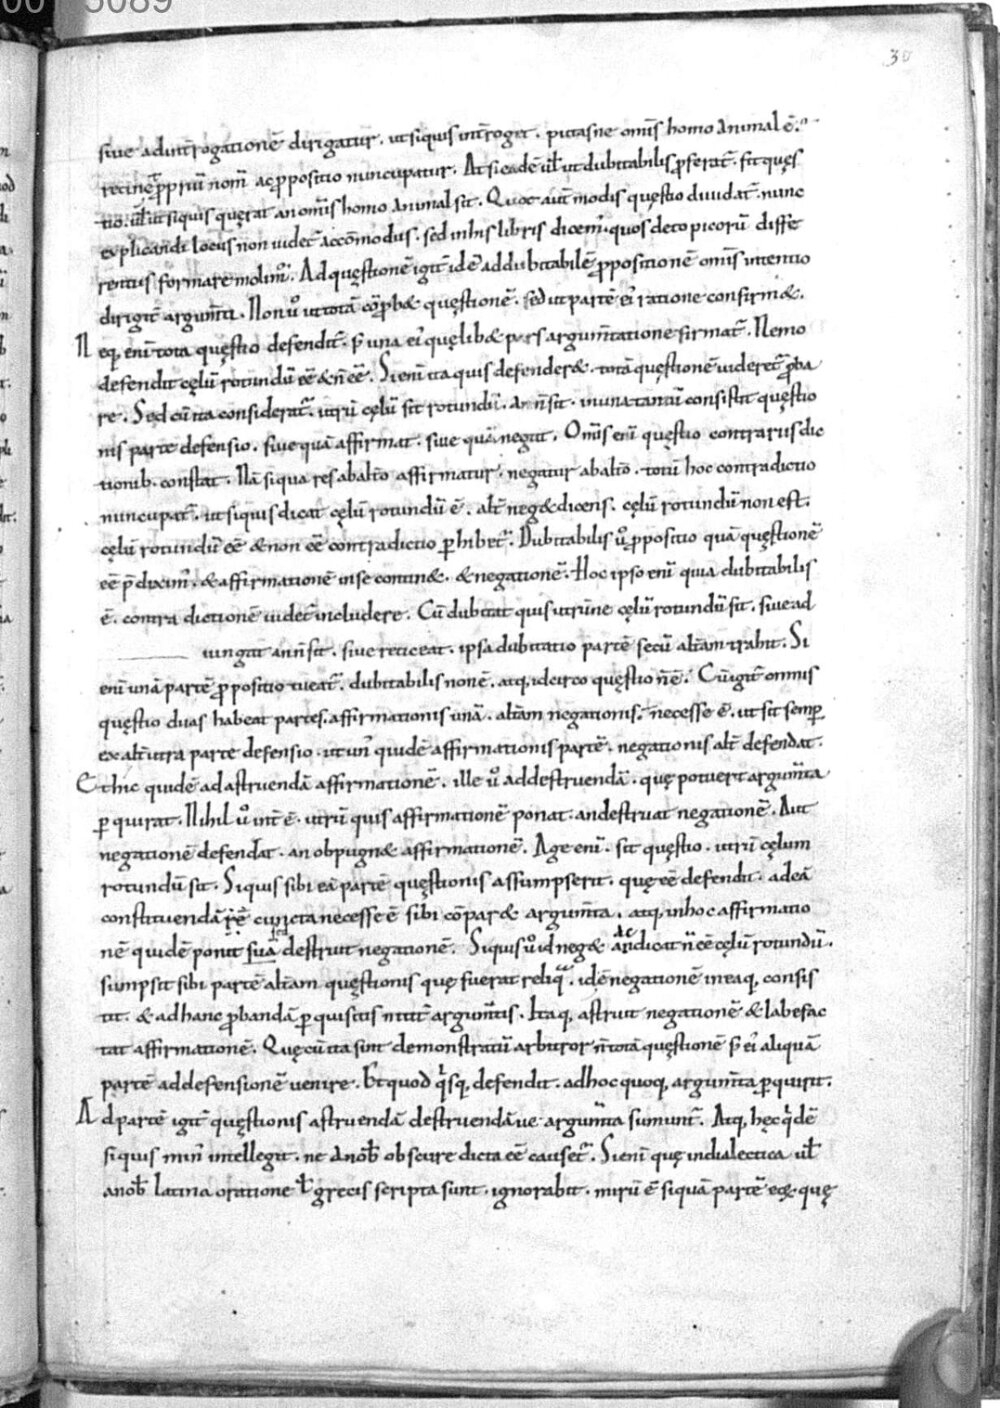 5089
30
siue adint̄rogationē dirigatur. ut siquis int̄roget. putas ne omīs homo animal ē.
retinet propriū nom̄ ac propositio nuncupatur. At si eadē ul̄ ut dubitabilis proferat̄. fit quęs
tio. ul̄ ut siquis quęrat an omīs homo animal sit. Quot aut̄ modis quęstio diuidat̄. nunc
explicandi locus non uidet̄ accōmodus. sed in his libris dicem̄. quos detopicorū diffe
rentiis formare molim̄. Ad quęstionē igit̄ id ē ad dubitabilē propositionē omīs intentio
dirigit̄ argum̄ti. Non ů ut totā cōprob& quęstionē. sed ut partē ei' ratione confirm&.
Neq, enī tota quęstio defendit̄. s; una ei' quęlib& pars argum̄tatione firmat̄. Nemo
defendit cęlū rotundū eē & n̄ eē. Si enī ita quis defender&. totā quęstionē uideret̄ proba
re. Sed cū ita considerat̄. utrū cęlū sit rotundū. an n̄ sit. in una tantū consistit quęstio
nis parte defensio. siue quā affirmat. siue quā negat. Omīs enī quęstio contrariis dic
tionib. constat. Nā si qua res ab alt̄o affirmatur. negatur ab alt̄o. totū hoc contradictio
nuncupat̄. ut siquis dicat cęlū rotundū ē. alt̄ neg& dicens. cęlū rotundū non est.
cęlū rotundū eē & non eē contradictio phibet̄. Dubitabilis ů propositio quā quęstionē
eē p̄diximꝰ. & affirmationē in se contin&. & negationē. Hoc ipso enī quia dubitabilis
ē. contra dictionē uidet̄ includere. Cū dubitat quis utrū ne cęlū rotundū sit. siue ad
iungat an n̄ sit. siue reticeat. ipsa dubitatio partē secū alt̄am trahit. Si
enī unā partē propositio tueat̄. dubitabilis non ē. atq, idcirco quęstio n̄ ē. Cū igit̄ omnis
quęstio duas habeat partes. affirmationis unā. alt̄am negationis. necesse ē. ut sit semp
ex alt̄utra parte defensio. ut unꝰ quidē affirmationis partē. negationis alt̄ defendat.
Et hic quidē ad astruendā affirmationē. ille ů ad destruendā. quę potuerit argum̄ta
pquirat. Nihil ů int̄ ē. utrū quis affirmationē ponat. an destruat negationē. Aut
negationē defendat. an obpugn& affirmationē. Age enī. sit quęstio. utrū cęlum
rotundū sit. Siquis sibi eā partē quęstionis assumpserit. quę eē defendit. ad eā
constituendā rē cuncta necesse ē sibi cōpar& argum̄ta. atq, in hoc affirmatio
nē quidē ponit suā destruit negationē. Siquis ů id neg& ac dicat n̄ eē cęlū rotundū.
sumpsit sibi partē alt̄am quęstionis quę fuerat reliq. idē negationē in eaq, consis
tit. & ad hanc probandā pquisitis nitit̄ argum̄tis. Itaq, astruit negationē & labefac
tat affirmationē. Quę cū ita sint demonstratū arbitror n̄ totā quęstionē s; ei' aliquā
partē ad defensionē uenire. Et quod qisq, defendit. ad hoc quoq, argum̄ta pquirit.
Ad partē igit̄ quęstionis astruendā destruendā ue argum̄ta sumunt̄. Atq, hęc qidē
siquis minꝰ intellegit. ne a nob obscure dicta eē causet̄. Si enī quę in dialectica ul̄
a nob latina oratione ł grecis scripta sunt. ignorabit. mirū ē siquā partē eꝙ quę